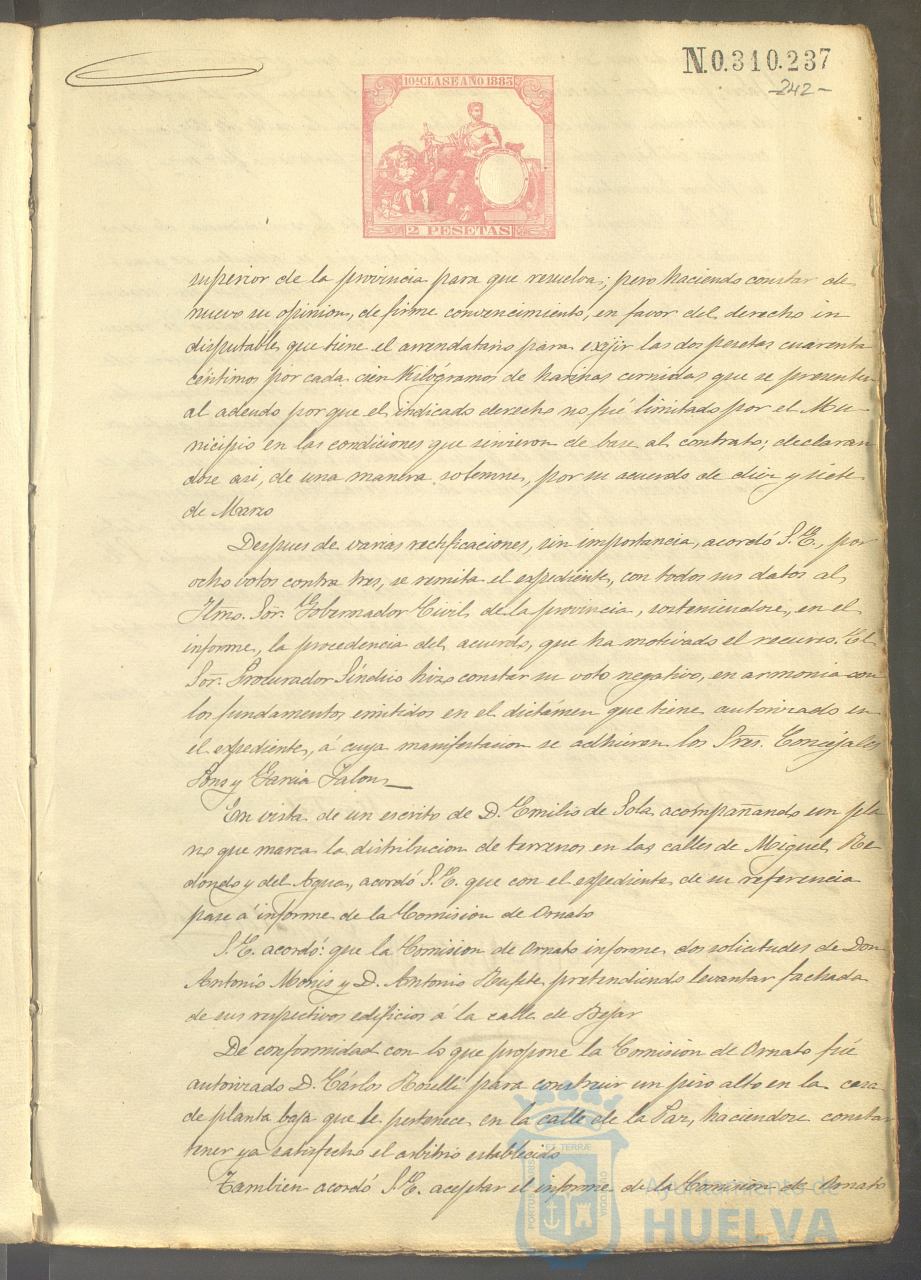 N.0.310.237
-242-
10ª CLASE AÑO 1883
2 PESETAS
superior de la provincia para que resuelva; pero haciendo constar de
nuevo su opinion, de firme convencimiento, en favor del derecho in
disputable que tiene el arrendatario para exijir las dos pesetas cuarenta
céntimos por cada cien Kilógramos de harinas cernidas que se presenten
al adeudo por que el indicado derecho no fué limitado por el Mu-
nicipio en las condiciones que sirvieron de base al contrato; declaran
dose asi, de una manera solemne, por su acuerdo de diez y siete
de Marzo
Despues de varias rectificaciones, sin importancia, acordó S.E., por
ocho votos contra tres, se remita el expediente, con todos sus datos al
Iltmo. Sor. Gobernador Civil de la provincia, sosteniendose, en el
informe, la procedencia del acuerdo, que ha motivado el recurso. El
Sor. Procurador Síndico hizo constar su voto negativo, en armonia con
los fundamentos emitidos en el dictámen que tiene autorizado en
el expediente, á cuya manifestacion se adhieron los Sres. Concejales
Pons y Garcia Jalon
En vista de un escrito de D. Emilio de Sola acompañando un pla
no que marca la distribucion de terrenos en las calles de Miguel Re
dondo y del Agua, acordó S.E. que con el expediente de su referencia
pase á informe de la Comision de Ornato
S.E. acordó: que la Comision de Ornato informe dos solicitudes de Don
Antonio Monis y D. Antonio Rufete pretendiendo levantar fachada
de sus respectivos edificios á la calle de Bejar
De conformidad con lo que propone la Comision de Ornato fué
autorizado D. Cárlos Roselli para construir un piso alto en la casa
de planta baja que le pertenece en la calle de la Paz, haciendose constar
tener ya satisfecho el arbitrio establecido
Tambien acordó S.E. aceptar el informe de la Comision de Ornato
Ayuntamiento de
HUELVA